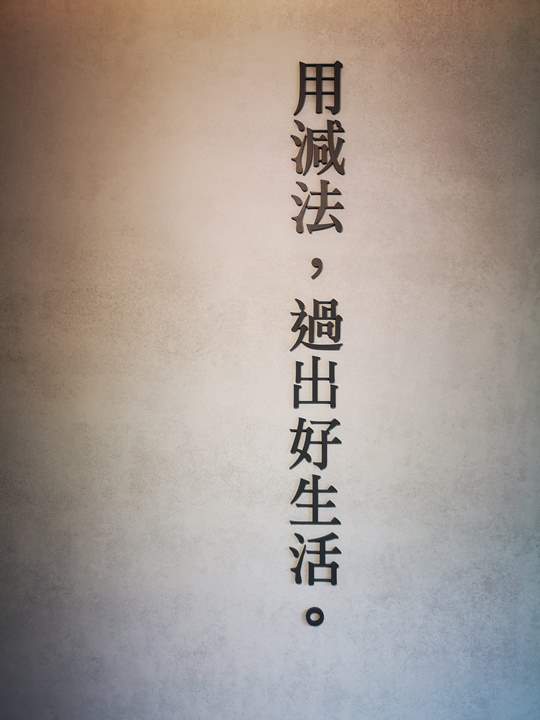 用減法，過出好生活。